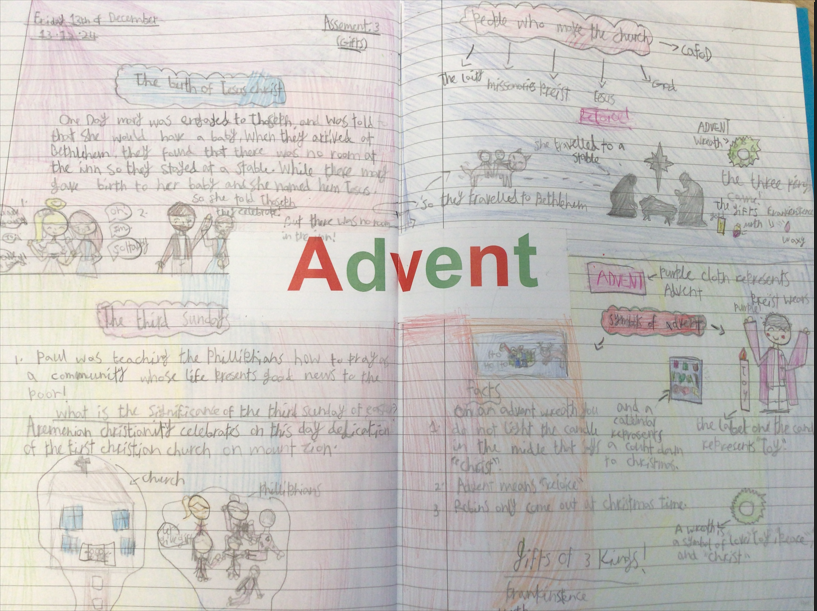 Friday 13th of December
13.12.24
Assement:3
(Gifts)
The birth of Jesus christ
One Day mary was engaged to Thoseth, and was told
that she would have a baby. When they arrived at
Bethlehem they found that there was no room at
the inn so they stayed at a stable. While there mary
gave birth to her baby and she named him Jesus.
so she told Thoseth
they celebrate!
1.
2.
im
but there was no room
in the inn!
People who make the church
CAFOD
The lord
missonaris
Preist
Jesus
she travelled to a
stable
so they travelled to Bethlehem
ADVENT
Wreath
the three kings
came
gifts
Advent
The third sunday
1. Paul was teaching the Phillibhians how to pray as
a community whose life presents good news to the
poor!
what is the significance of the third sunday of
Aremenian christianity celebrates on this day dedication
of the first christian church on mount zion.
church
Phillibhians
ADVENT
Purple cloth represents
Advent
Preist wears
Purple
symbols of advent
facts
1. On an advent wreath you
do not light the candle
in the middle that says
"christ".
2. Advent means "rejoice"
3 Robins only come out at christmas time.
and a
calendar
represents
a count down
to christmas.
the candle
represents "Joy."
JOY
A wreath is
a symbol of
and "christ"
Gifts of 3 Kings!
frankinsence